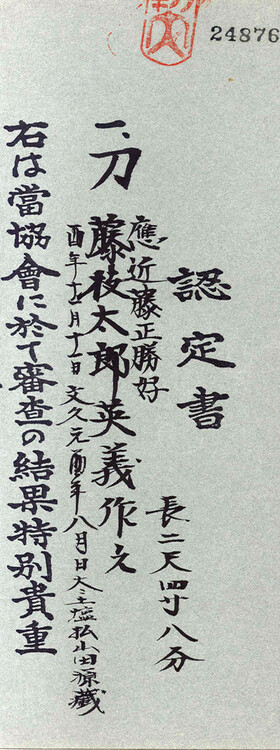 24876
認定書
長二尺四寸八分
應近藤正勝好
一、刀 藤枝太郎英義作之
酉年 十一日 文久元酉年八月日 土壇払山田源蔵
右は當協會に於て審査の結果特別貴重